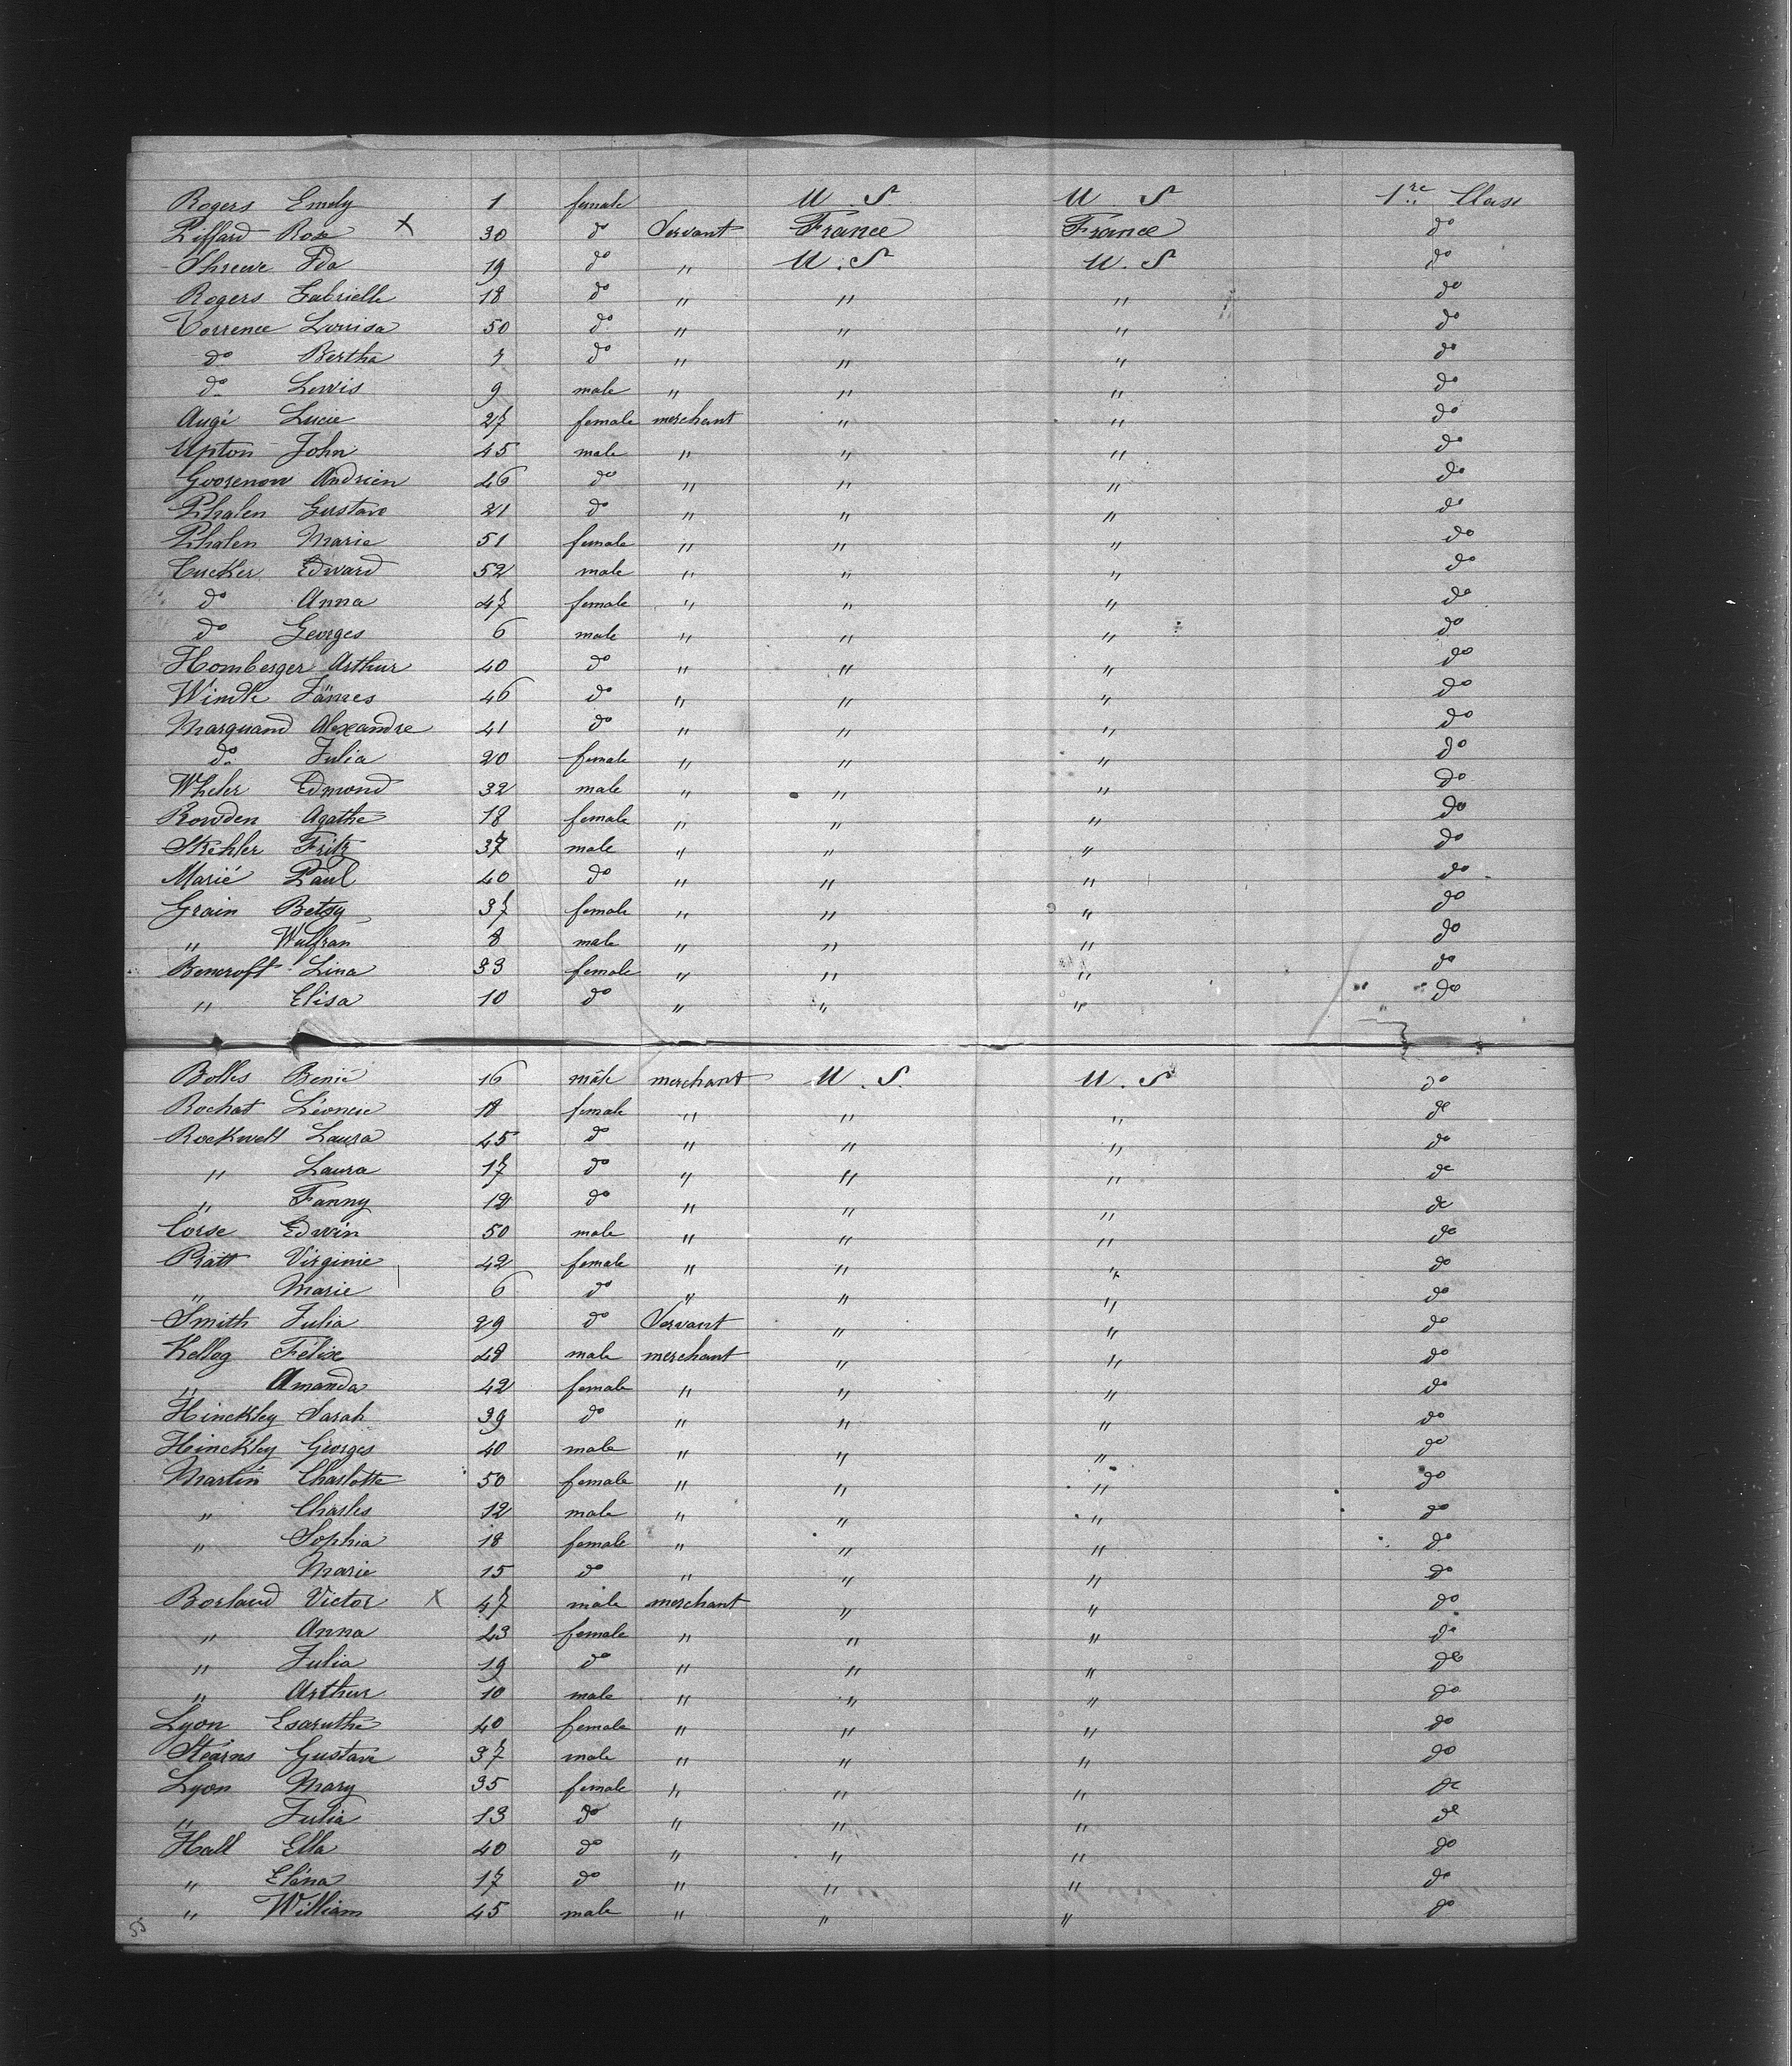 Rogers Emely 1 female U. S U. S 1re Class
Piffard Rose X 30 do Servant France France do
Shreve Ida 19 do " U. S U. S do
Rogers Gabrielle 18 do " " " do
Torrence Louisa 50 do " " " do
do Bertha 7 do " " " do
do Lewis 9 male " " " do
Augé Lucie 27 female merchant " " do
Upton John 45 male " " " do
Goosenow Andrien 46 do " " " do
Phalen Gustave 21 do " " " do
Phalen Marie 51 female " " " do
Tucker Edward 52 male " " " do
do Anna 47 female " " " do
do Georges 6 male " " " do
Homberger Arthur 40 do " " " do
James 46 do " " " do
Marquand Alexandre 41 do " " " do
do Julia 20 female " " " do
Wheler Edmond 32 male " " " do
Rowden Agathe 18 female " " " do
Stehler Fritz 37 male " " " do
Marié Paul 40 do " " " do
Grain Betsy 37 female " " " do
" Wulfran 8 male " " " do
Bencroft Lina 33 female " " " do
" Elisa 10 do " " " do
Bolles Benié 16 male merchant U. S. U. S do
Rochat Léoncie 18 female " " " do
Rockwell Laura 45 do " " " do
" Laura 17 do " " " do
" Fanny 12 do " " " do
Corse Edwin 50 male " " " do
Pratt Virginie 42 female " " " do
" Marie 6 do " " " do
Smith Julia 29 do Servant " " do
Kellog Félix 48 male merchant " " do
" Amanda 42 female " " " do
Hinckley Sarah 39 do " " " do
Hinckley Georges 40 male " " " do
Martin Charlotte 50 female " " " do
" Charles 12 male " " " do
" Sophia 18 female " " " do
Marie 15 do " " " do
Borland Victor X 47 male merchant " " do
" Anna 43 female " " " do
" Julia 19 do " " " do
" Arthur 10 male " " " do
Lyon Esaruthe 40 female " " " do
Stearns Gustave 37 male " " " do
Lyon Mary 35 female " " " do
" Julia 13 do " " " do
Hall Ella 40 do " " " do
" Eléna 17 do " " " do
" William 45 male " " " do
55